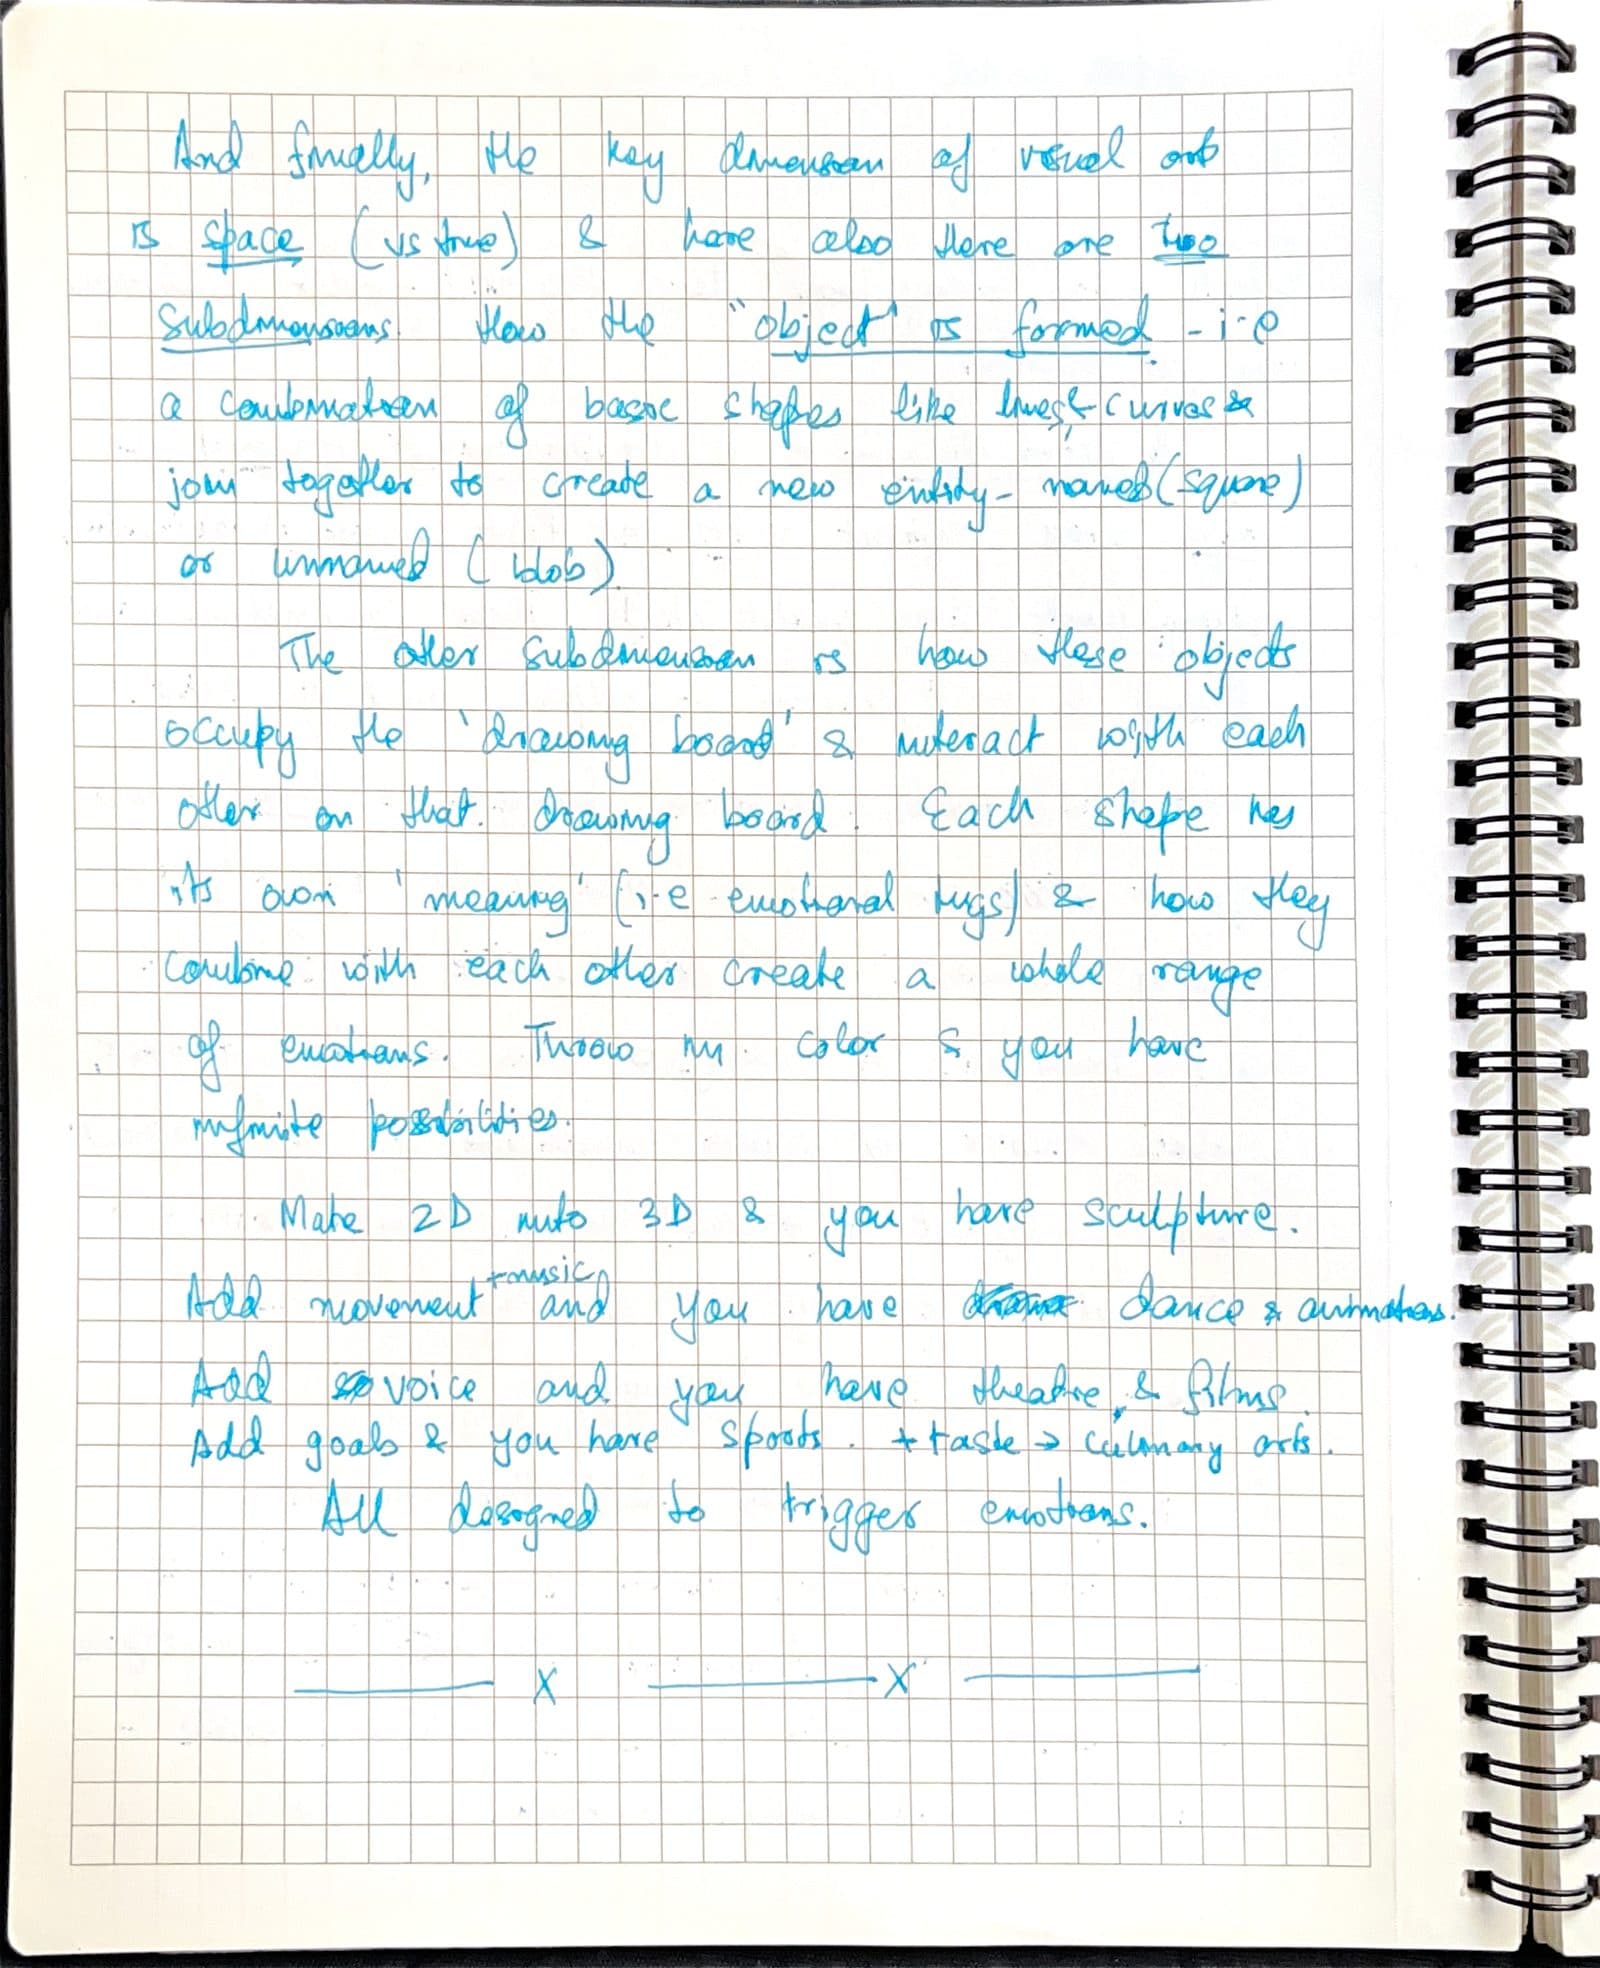 And finally, the key dimension of visual art
is space (vs time) & here also there are two
subdimensions. How the "object" is formed - i.e
a combination of basic shapes like lines & curves
join together to create a new entity - named (square)
or unnamed (blob)
The other subdimension is how these objects
occupy the 'drawing board' & interact with each
other on that drawing board. Each shape has
its own 'meaning' (i.e emotional tugs) & how they
combine with each other create a whole range
of emotions. Throw in color & you have
infinite possibilities.
Make 2D into 3D & you have sculpture.
+music
Add movement and you have dance & animations.
Add voice and you have theatre & films.
Add goals & you have sports. + taste → culinary arts.
All designed to trigger emotions.
X X